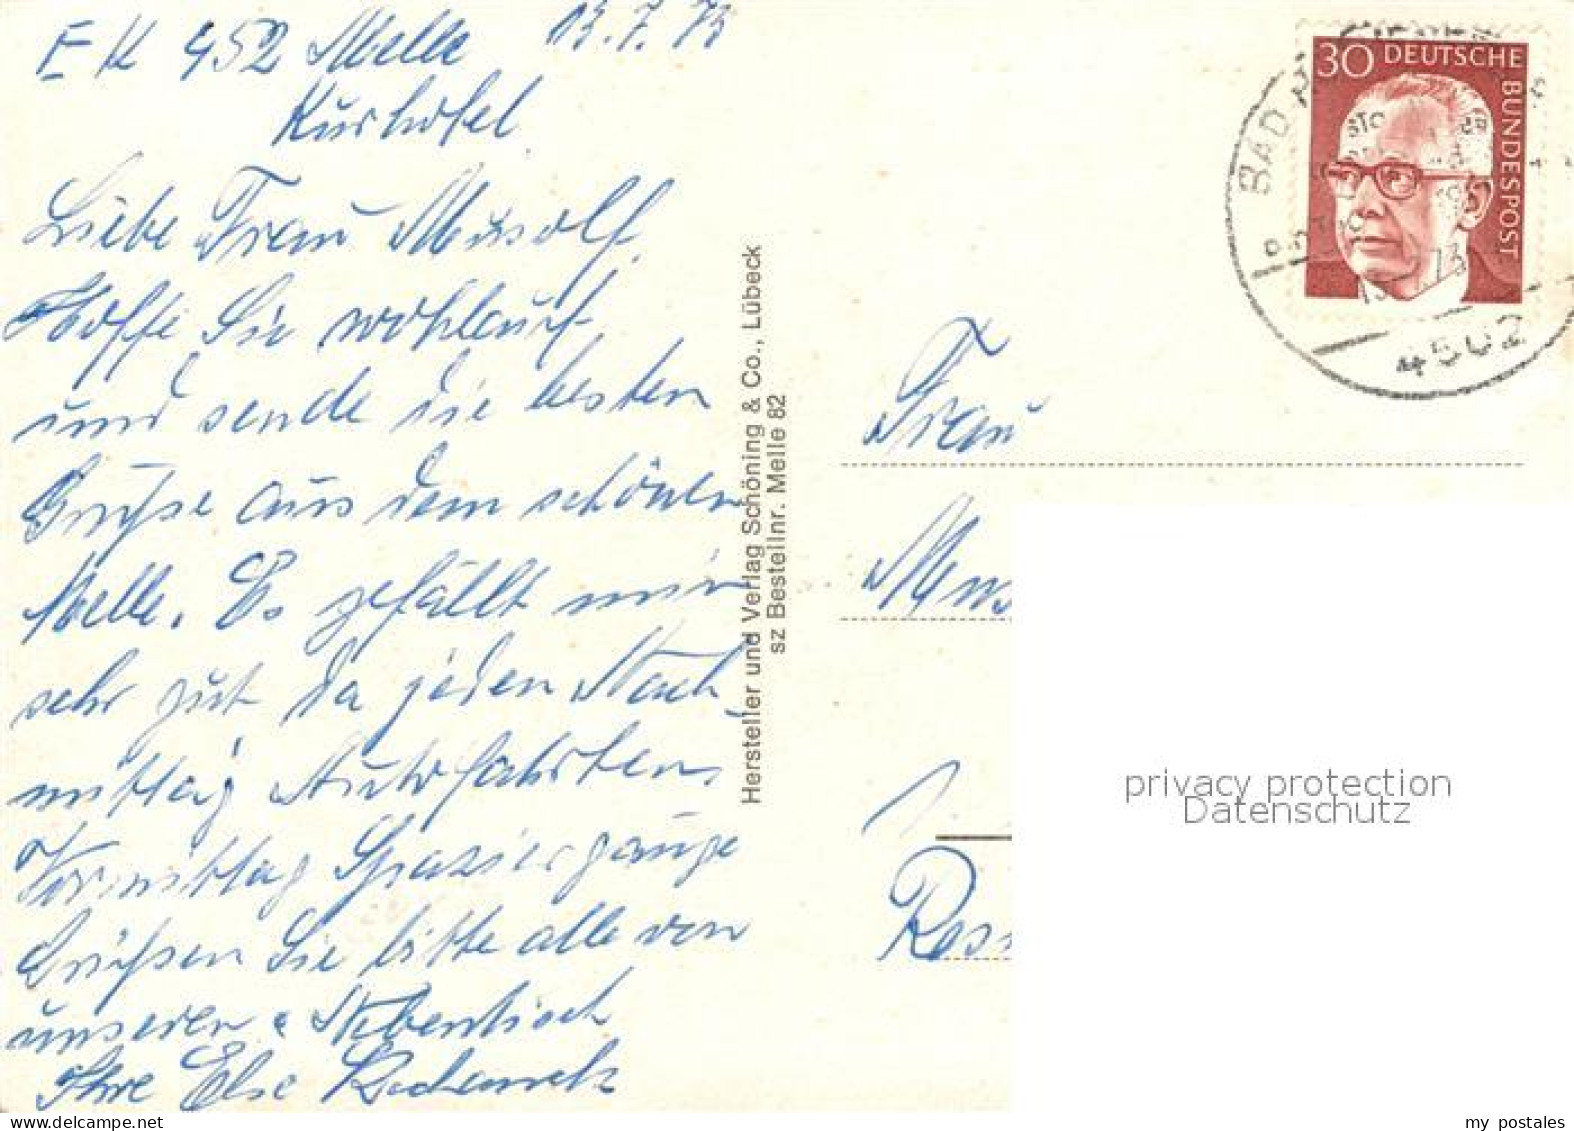 EK 452 Melle 13.7.73
Kurhotel
Liebe Frau Musolf.
Hoffe Sie wohlauf,
und sende die besten
Grüße aus dem schönen
Melle. Es gefällt mir
sehr gut da jeden Nach-
mittag Autofahrten.
Vormittag Spaziergänge
Grüßen Sie bitte alle von
unseren Nebentisch
Ihre Else
Hersteller und Verlag Schöning & Co., Lübeck
sz Bestellnr. Melle 82
30 DEUTSCHE
BUNDESPOST
BAD
73
4502
Frau
privacy protection
Datenschutz
my postales